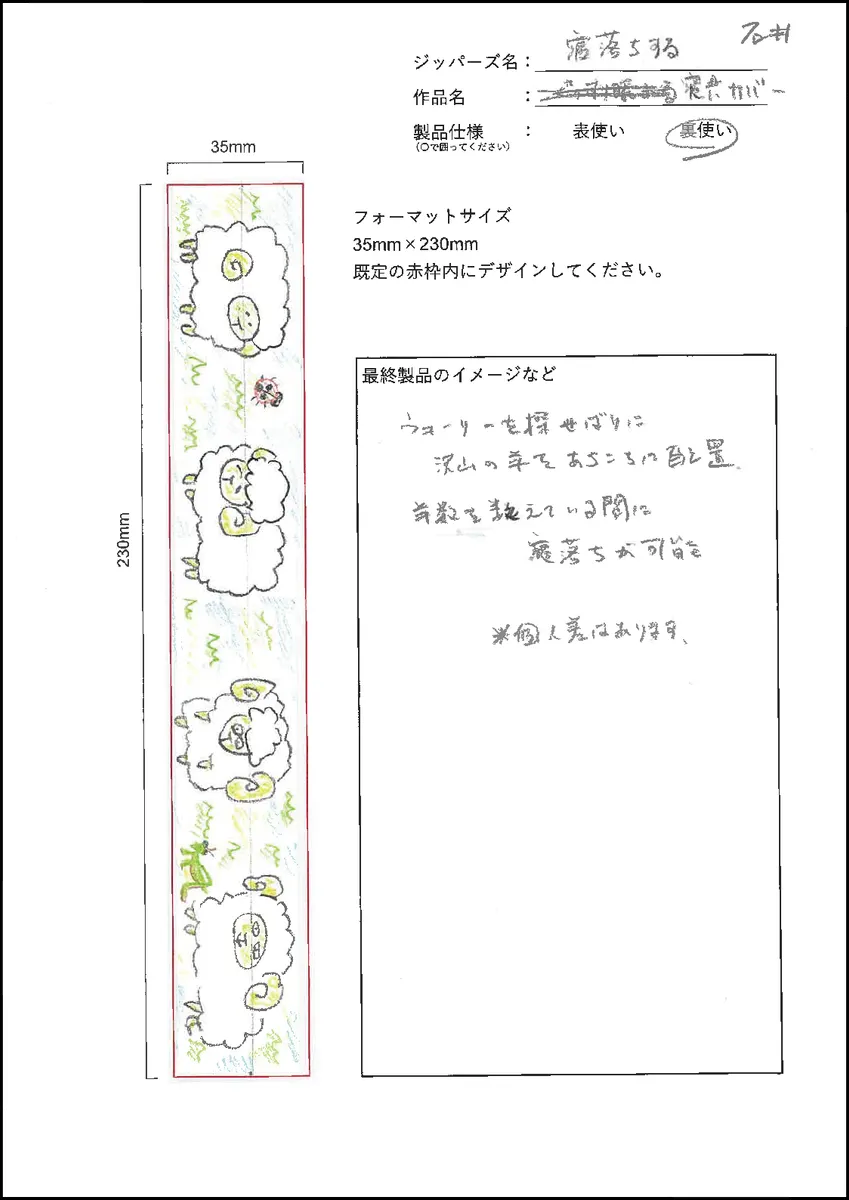 石井
ジッパーズ名： 寝落ちする
作品名 ： 寝具カバー
製品仕様 ： 表使い 裏使い
（○で囲ってください）
35mm
フォーマットサイズ
35mm×230mm
既定の赤枠内にデザインしてください。
最終製品のイメージなど
ウォーリーを探せばりに
沢山の羊をあちこちに配置。
羊数を数えている間に
寝落ちが可能
※個人差はあります。
230mm